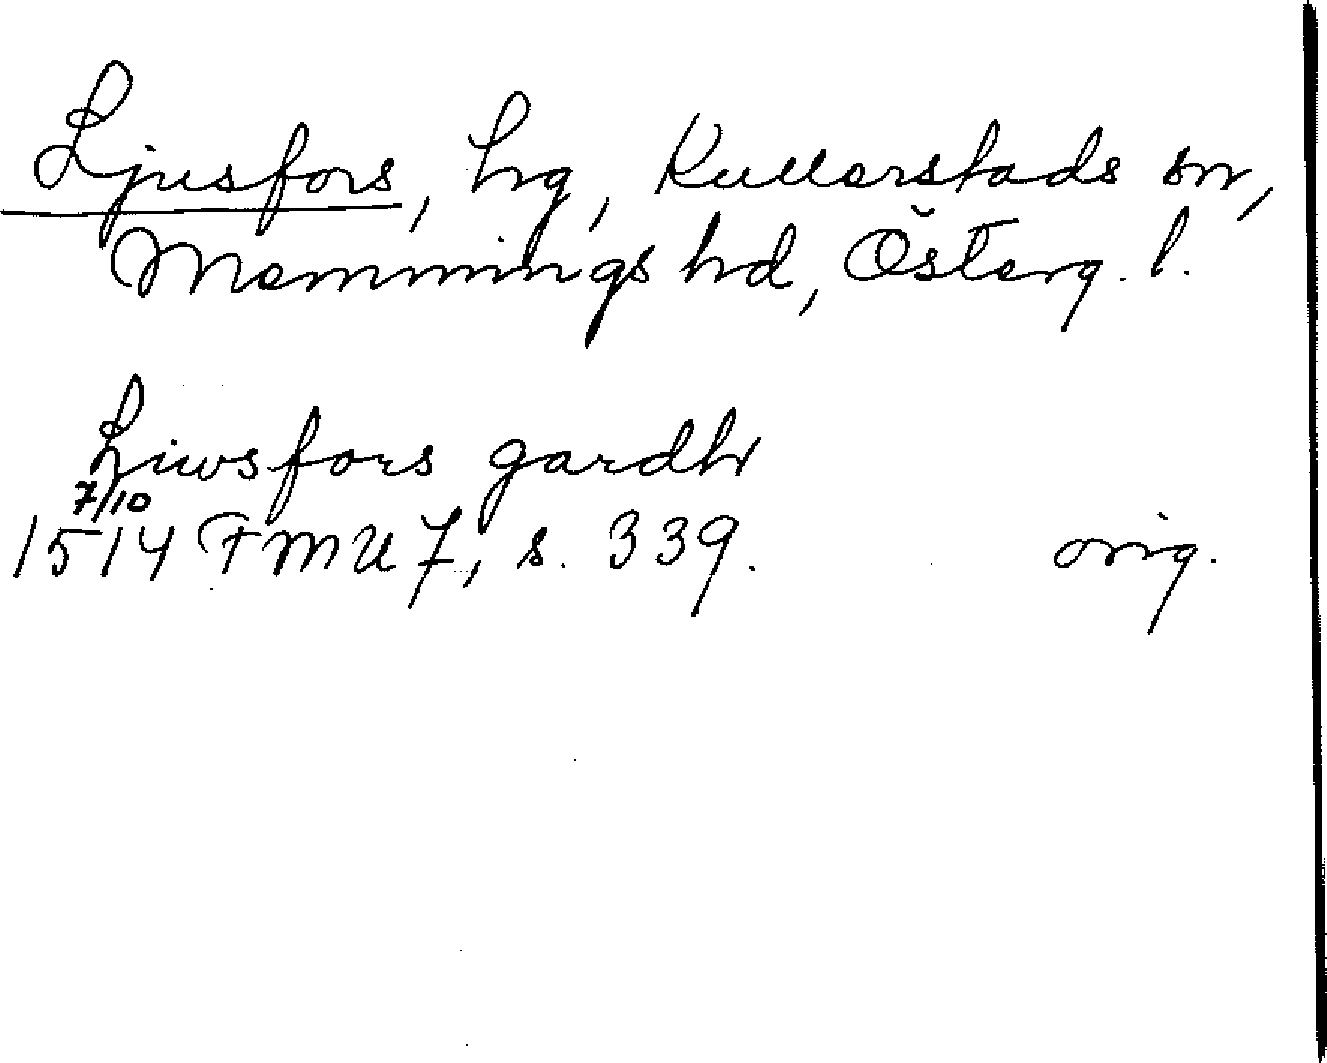 Ljusfors, hg, Kullerstads sn,
Memmings hd, Österg. l.
Liwsfors gardh
7/10
1514 FMU 7, s. 339. orig.